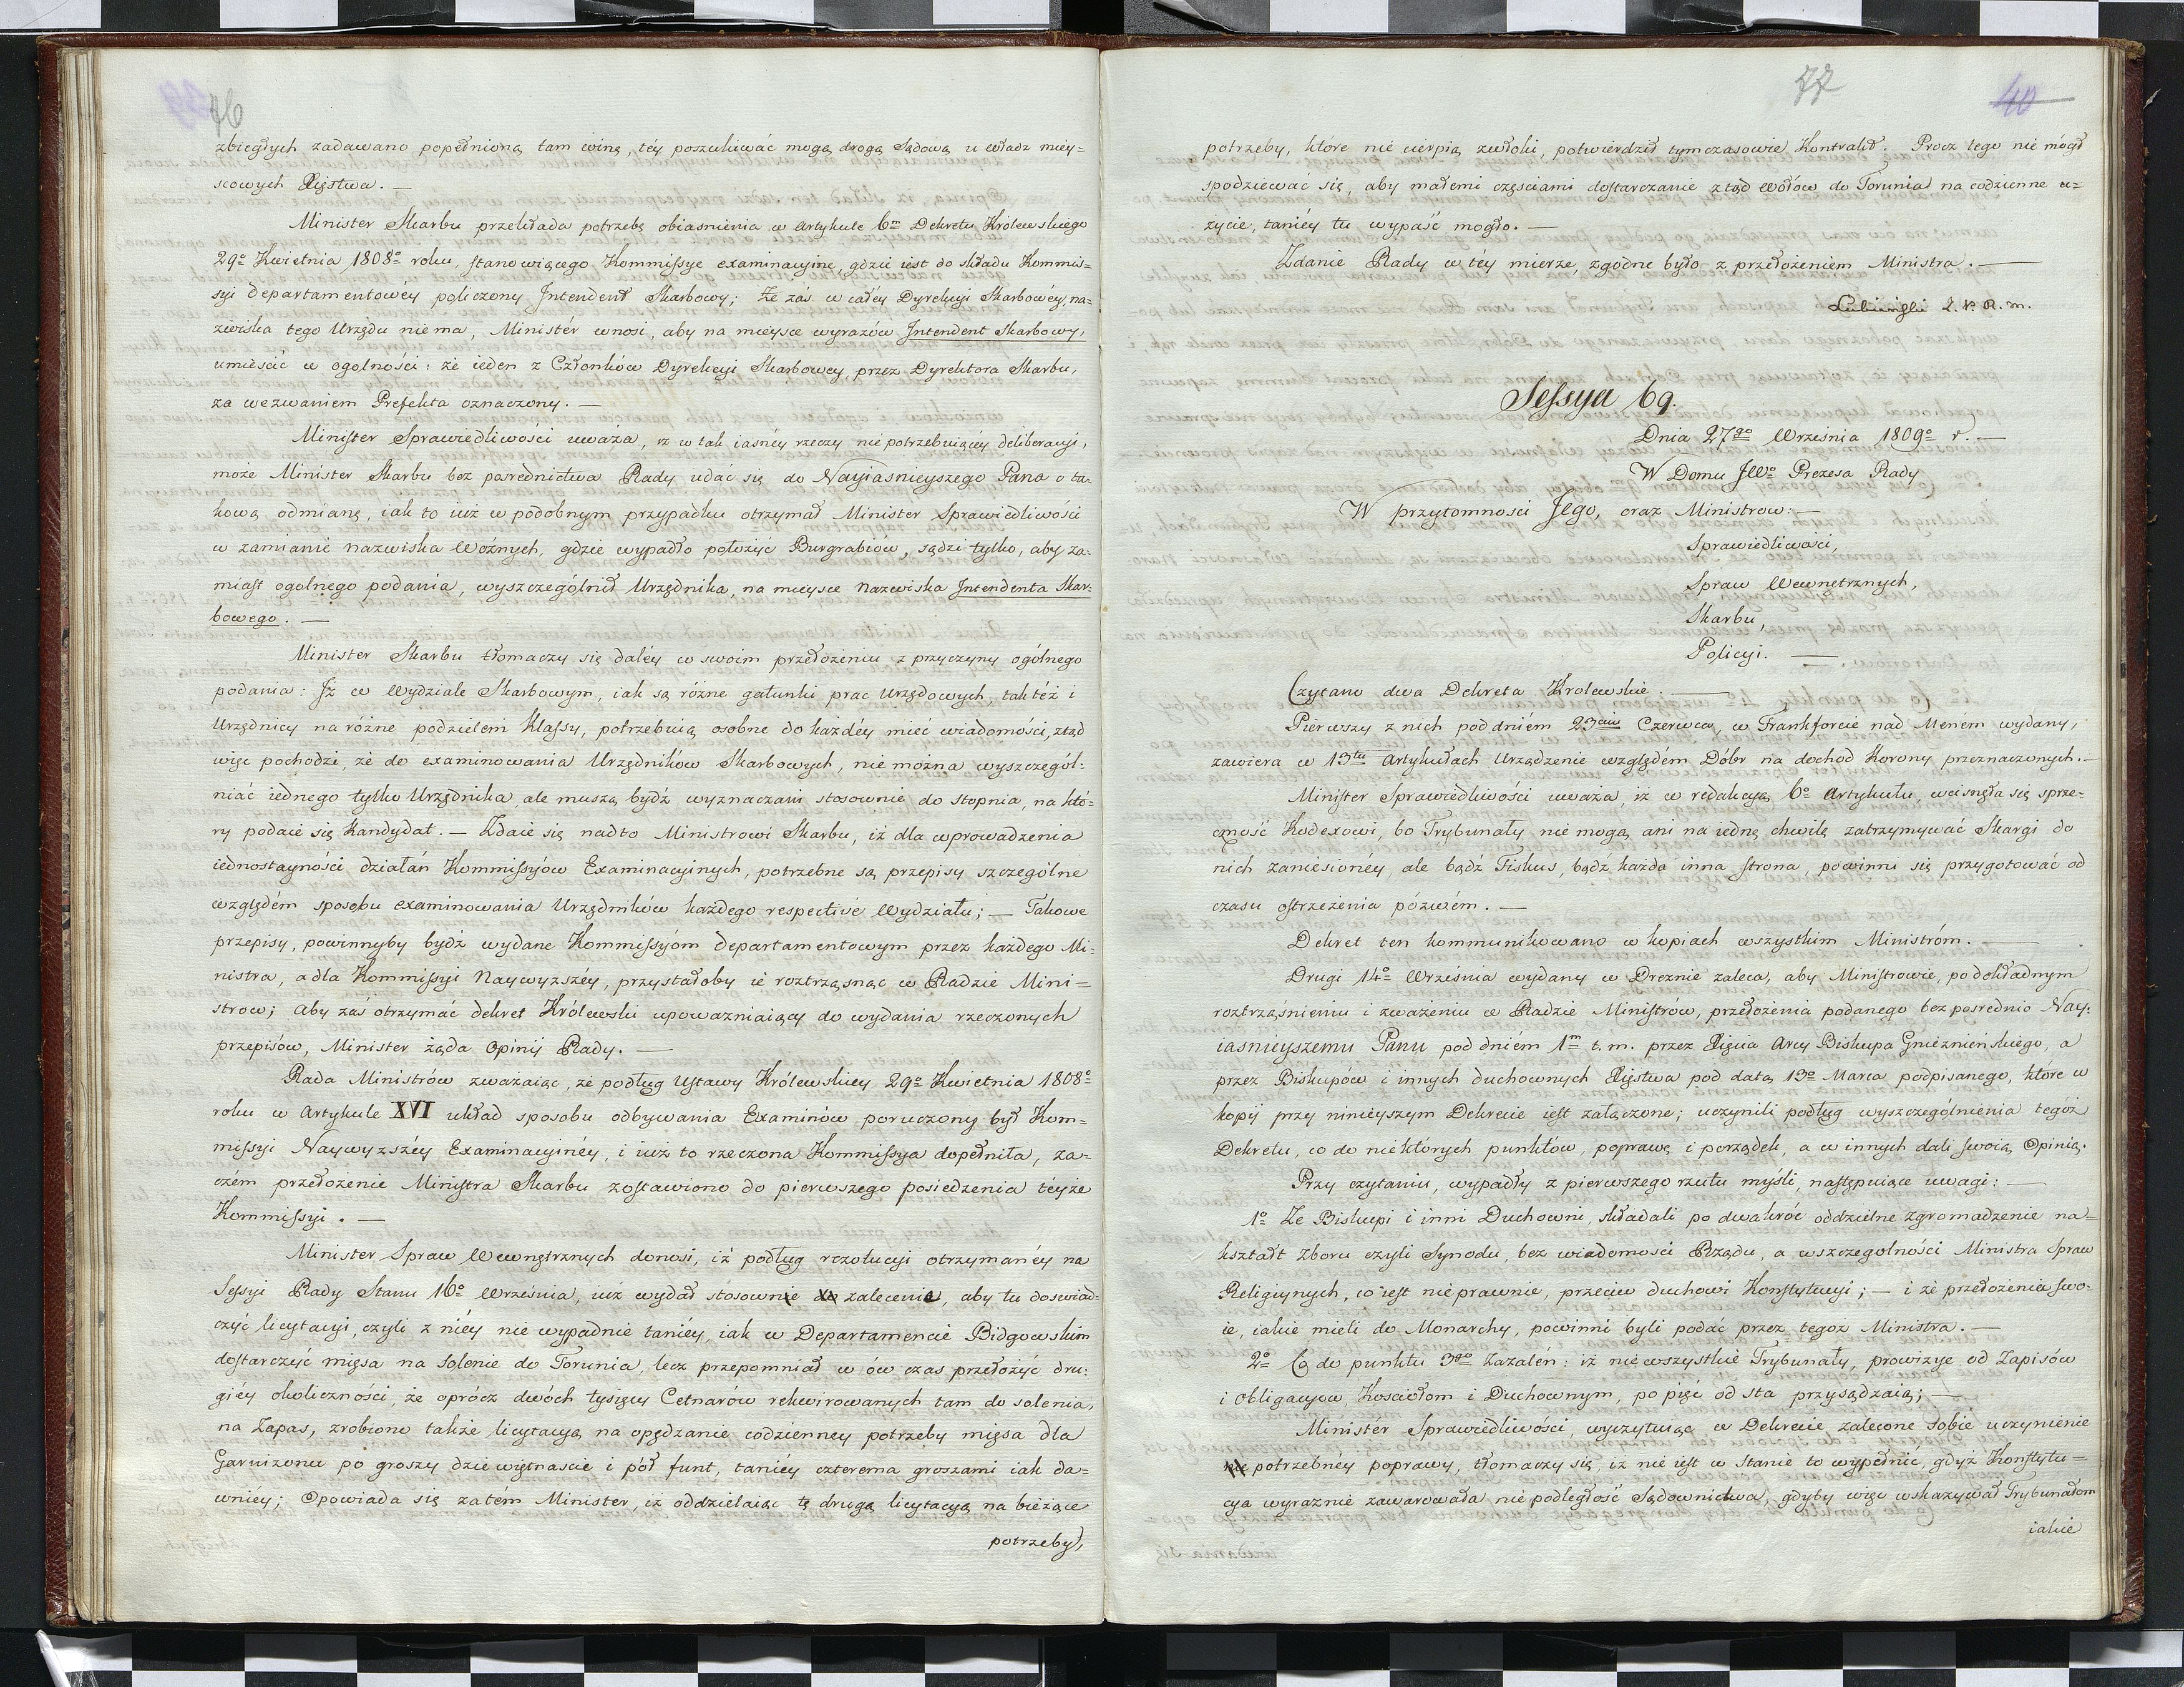 76
zbiegłych zadawano popełnioną tam winę, téy poszukiwać mogą drogą Sądową u władz miéy=
scowych Xięstwa. —
Minister Skarbu przekłada potrzebę obiasnienia w Artykule 6m Dekretu Królewskiego
29o Kwietnia 1808o roku, stanowiącego Kommissye examinacyine, gdzie iest do składu Kommis=
syi departamentowéy policzony Intendent Skarbowy; Ze zás w całéy Dyrekcyi Skarbowéy, na=
zwiska tego Urzędu niema, Ministér wnosi, aby na mieysce wyrazów Intendent Skarbowy,
umieścić w ogolności: że ieden z Członków Dyrekcyi Skarbowey, przez Dyrektora Skarbu,
za wezwaniem Prefekta oznaczony. —
Minister Sprawiedliwości uważa, iz w tak iasnéy rzeczy nie potrzebuiącéy deliberacyi,
może Minister Skarbu bez posrednictwa Rady udać się do Nayiasnieyszego Pana o ta=
kową odmianę, iak to iuż w podobnym przypadku otrzymał Minister Sprawiedliwości
w zamianie nazwiska Woźnych, gdzie wypadło położyć Burgrabiów, sądzi tylko, aby za=
miast ogolnego podania, wyszczególnił Urzędnika, na mieysce nazwiska Intendenta Skar=
bowego. —
Minister Skarbu tłomaczy się daléy w swoim przełożeniu z przyczyny ogólnego
podania: Iż w Wydziale Skarbowym, iak są różne gatunki prac Urzędowych, tak też i
Urzędnicy na różne podzieleni Klassy, potrzebuią osobne do każdéy mieć wiadomości, ztąd
więc pochodzi, że do examinowania Urzędników Skarbowych, nie można wyszczegól=
niać iednego tylko Urzędnika, ale muszą bydź wyznaczani stosownie do stopnia, na któ=
ry podaie się Kandydat. — Zdaie się nadto Ministrowi Skarbu, iż dla wprowadzenia
iednostayności działań Kommissyów Examinacyinych, potrzebne są przepisy szczególne
względém sposobu examinowania Urzędników każdego respectivé Wydziału; — Takowe
przepisy, powinnyby bydź wydane Kommissyóm departamentowym przez każdego Mi=
nistra, a dla Kommissyi Naywyzszéy, przystałoby ie roztrząsnąc w Radzie Mini=
strow; Aby zás otrzymać dekret Królewski upowazniaiący do wydania rzeczonych
przepisów, Minister żąda Opinij Rady. —
Rada Ministrów zważaiąc, że podług Ustawy Królewskiey 29o Kwietnia 1808o
roku w Artykule XVI układ sposobu odbywania Examinów poruczony był Kom=
missyi Naywyzszéy Examinacyinéy, i iuż to rzeczona Kommissya dopełniła, za=
czém przełożenie Ministra Skarbu zostawiono do pierwszego posiedzenia téyże
Kommissyi. —
Minister Spraw Wewnętrznych donosi, iż podług rezolucyi otrzymanéy na
Sessyi Rady Stanu 16o Września, iuż wydał stosowne zalecenie, aby tu doswiad=
czyć licytacyi, czyli z niéy nie wypadnie taniéy, iak w Departamencie Bidgoskim
dostarczyć mięsa na Solenie do Torunia, lecz przepomniał w ów czas przełożyć dru=
giéy okoliczności, że oprócz dwóch tysięcy Cetnarów rekwirowanych tam do solenia,
na Zapas, zrobiono także licytacyą na opędzanie codzienney potrzeby mięsa dla
Garnizonu po groszy dziewiętnascie i pół funt, taniéy czterema groszami iak da=
wniéy; Opowiada się zatém Minister, iż oddzielaiąc tę drugą licytacyą na bieżące
potrzeby,
77
40
potrzeby, które nie cierpią zwłoki, potwierdził tymczasowie Kontrakt. Procz tego nie mógł
spodziewać się, aby małemi częściami dostarczanie ztąd Wołów do Torunia na codzienne u=
życie, taniéy tu wypaść mogło. —
Zdanie Rady w tey mierze, zgodne było z przełożeniem Ministra. —
Lubieński
Sessya 69.
Dnia 27go Września 1809o r. —
W Domu JWo Prezesa Rady
W przytomnosci Jego, oraz Ministrow: —
Sprawiedliwości,
Spraw Wewnętrznych,
Skarbu,
Policyi. —
Czytano dwa Dekreta Krolewskie. —
Pierwszy z nich pod dniém 23cim Czerwca, w Frankforcie nad Meném wydany,
zawiera w 13tu Artykułach Urządzenie względém Dóbr na dochod Korony przeznaczonych. —
Minister Sprawiedliwości uważa, iż w redakcyą 6o Artykułu, wcisnęła się sprze=
czność Kodexowi, bo Trybunały nie mogą ani na iedną chwilę zatrzymywać Skargi do
nich zaniesionéy, ale bądź Fiskus, bądź każda inna strona, powinni się przygotować od
czasu ostrzeżenia pózwém. —
Dekret ten kommunikowano w kopiach wszystkim Ministróm. —
Drugi 14o Września wydany w Dreznie zaleca, aby Ministrowie, po dokładnym
roztrząśnieniu i zważeniu w Radzie Ministrów, przełożenia podanego bezposrednio Nay=
iasnieyszemu Panu pod dniém 1m t. m. przez Xięcia Arcy Biskupa Gnieźnieńskiego, a
przez Biskupów i innych duchownych Xięstwa pod datą 13o Marca podpisanego, które w
kopij przy ninieyszym Dekrecie iest załączone; uczynili podług wyszczególnienia tegoż
Dekretu, co do niektórych punktów, poprawę i porządek, a w innych dali swoią Opinią.
Przy czytaniu, wypadły z pierwszego rzutu myśli, następuiące uwagi: —
1o Ze Biskupi i inni Duchowni, składali po dwakróć oddzielne zgromadzenie na=
kształt zboru czyli Synodu, bez wiadomości Rządu, a wszczegolności Ministra Spraw
Religiynych, co iest nie prawnie, przeciw duchowi Konstytucyi; — i że przełożenia swo=
ie, iakie mieli do Monarchy, powinni byli podać przez tegoż Ministra. —
2o Co do punktu 3go Zazaleń: iż nie wszystkie Trybunały, prowizye od Zapisów
i Obligacyow Kosciołom i Duchownym, po pięć od sta przysądzaią; —
Ministér Sprawiedliwości, wyczytuiąc w Dekrecie zalecone sobie uczynienie
potrzebnéy poprawy, tłomaczy się, iż nie iest w Stanie to wypełnic, gdyż Konstytu=
cya wyraznie zawarowała niepodległość Sądownictwa, gdyby więc wskazywał Trybunałom
iakie